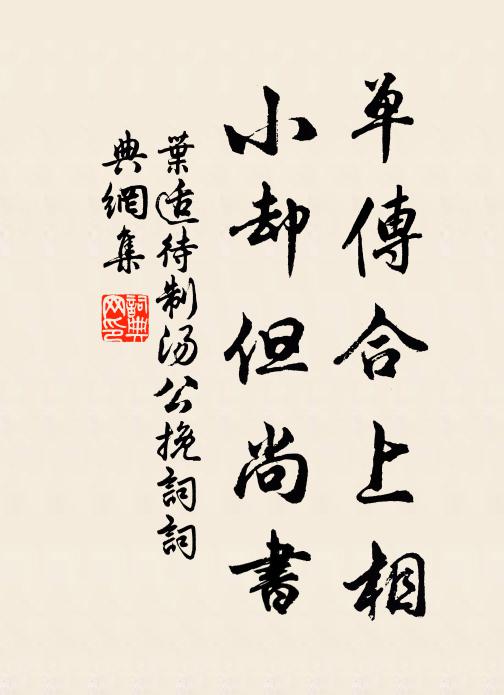 单傳合上相
小却但尚書
葉适待制汤公挽詞詞
典網集
詞典网印